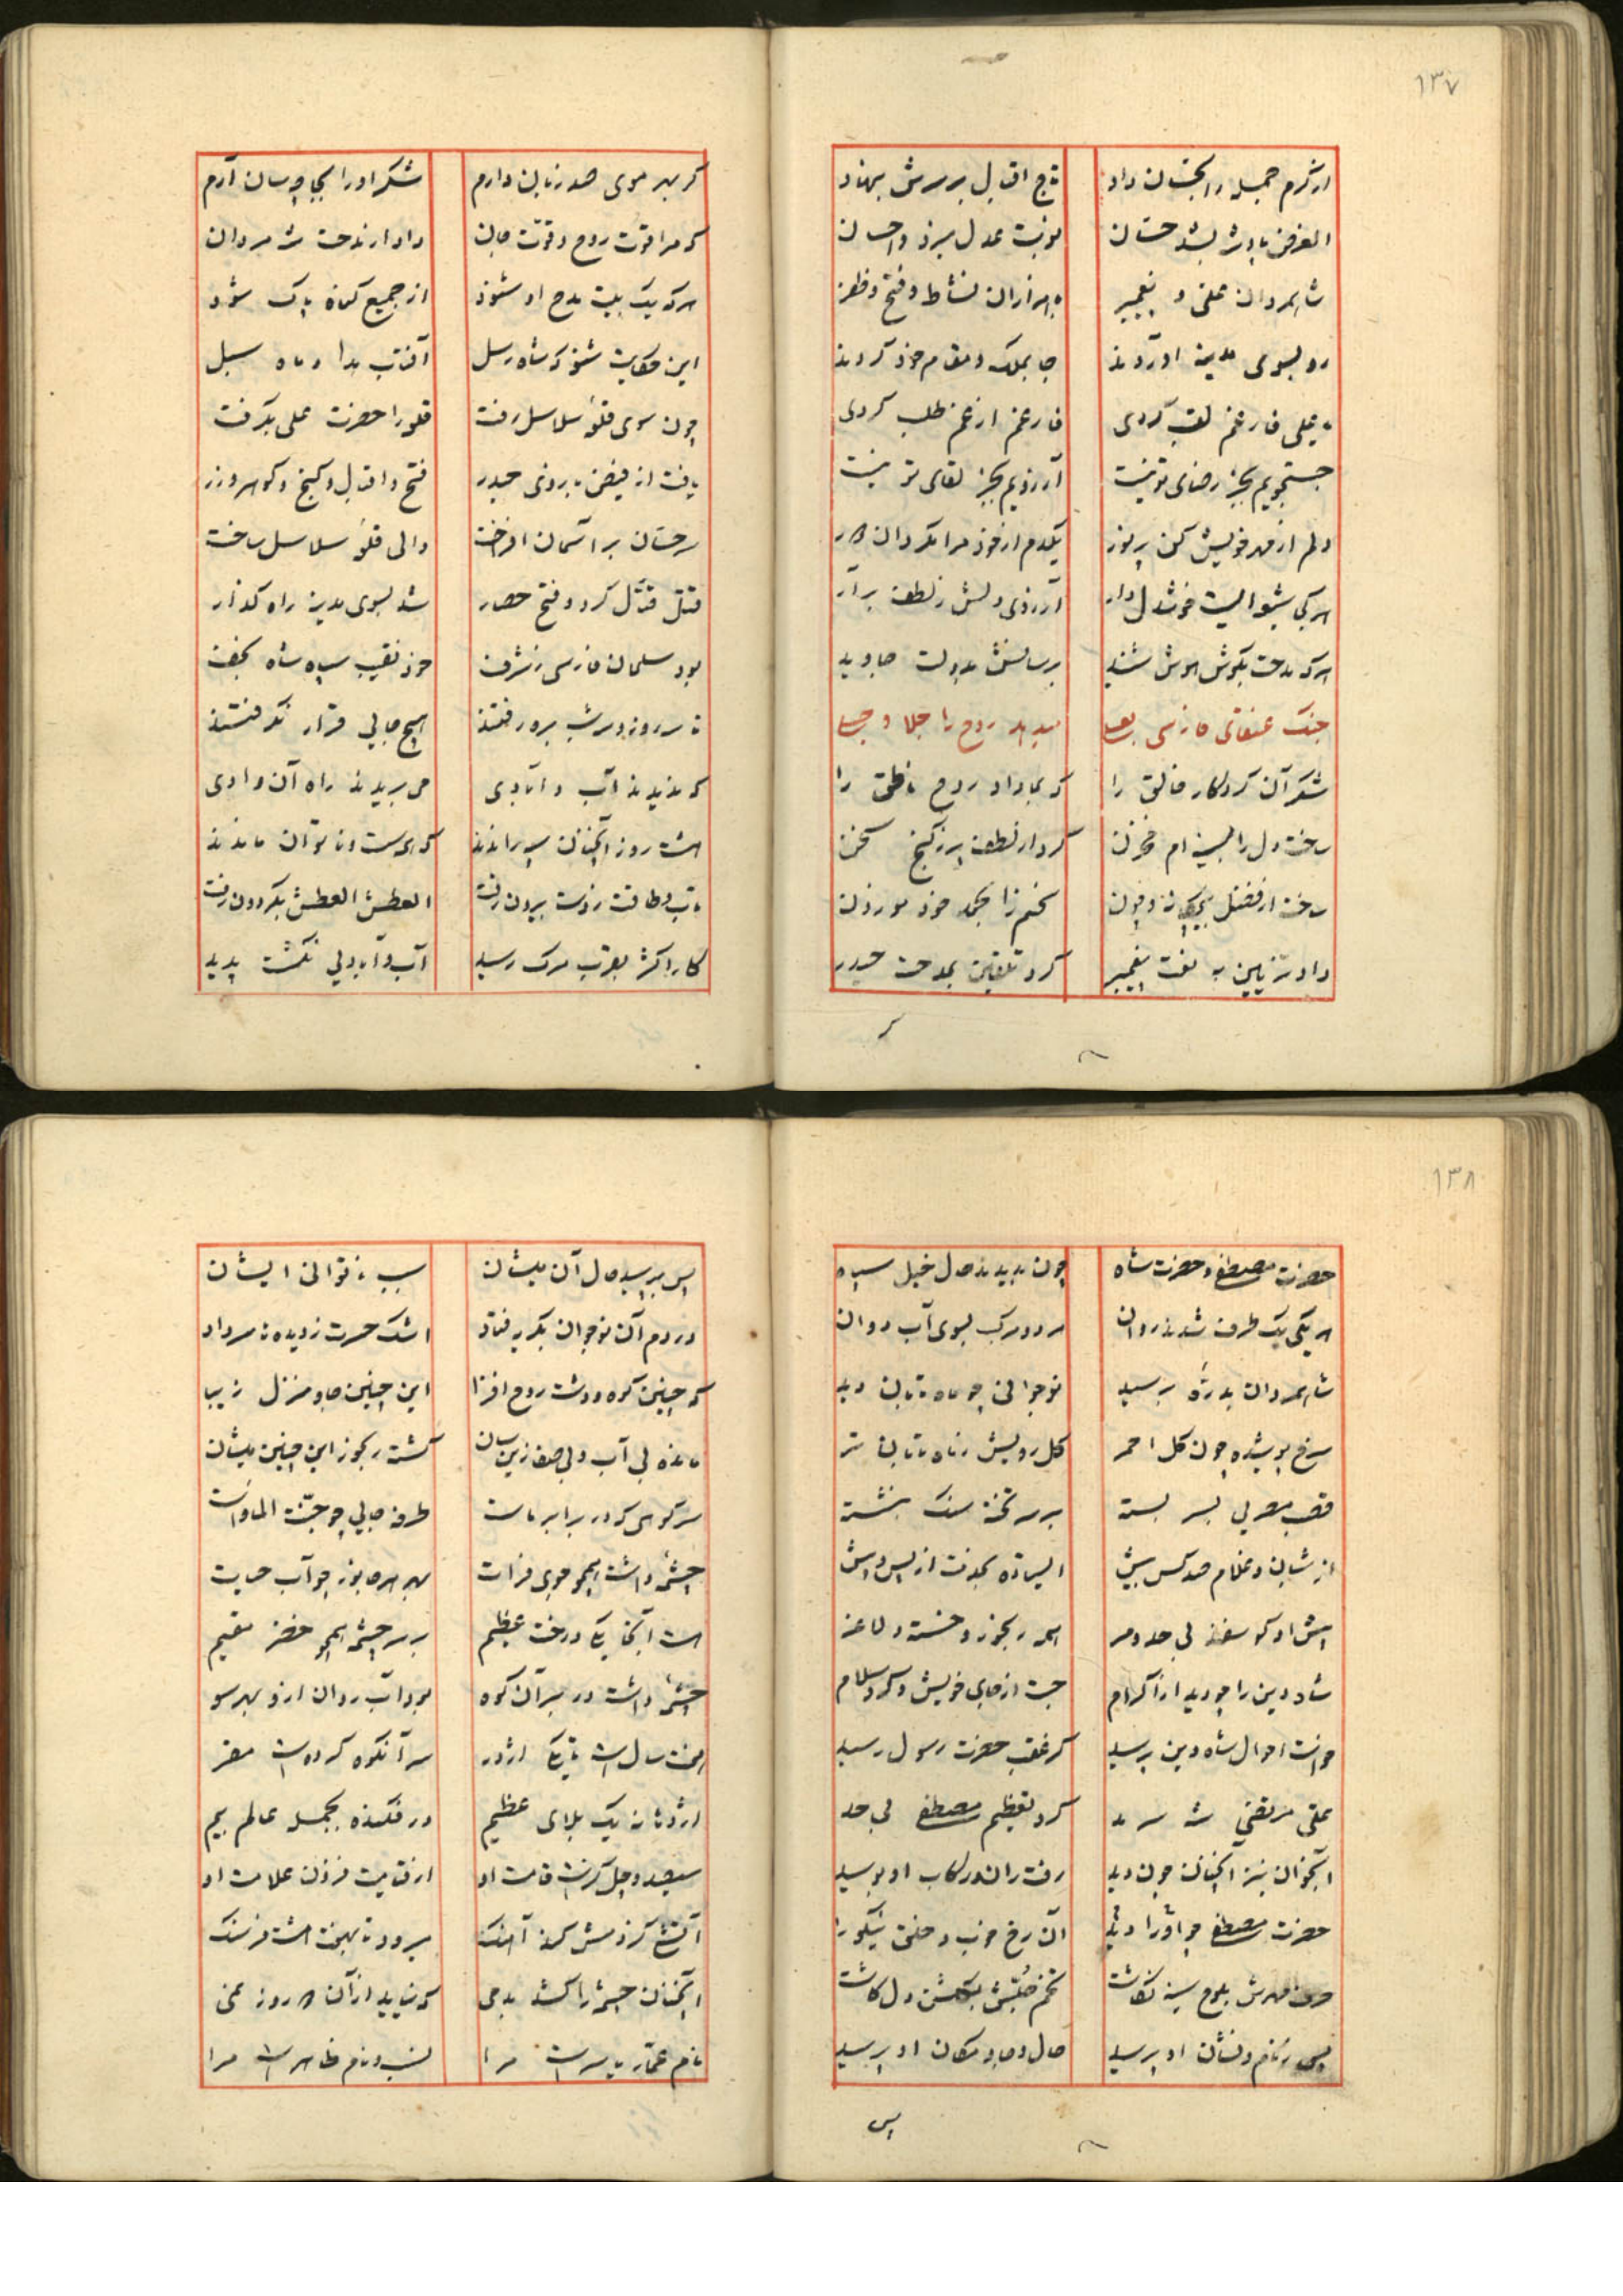 ١٣٧
از کرم جمله را بخشان داد تاج اقبال بر سرش بنهاد
الغرض پادشه بشد خشنان نوبت عدل میزد و احسان
شاهمردان علی و پیغمبر با هزاران نشاط و فتح و ظفر
رو بسوی مدینه آوردند جا بملک و مقام خود کردند
یا علی فارغم لقب کردی فارغم از غم طلب کردی
جستجویم بجز رضای تو نیست آرزویم بجز لقای تو نیست
دلم از مهر خویش کن پر نور یکدم از خود مرا مگردان دور
هر کی شیوا لیست خوشدل دار آرزوی دلش ز لطف برآر
هر که مدحت بگوش هوش شنید برسانش بدولت جاوید
جنک عنقای فارسی بعسا میدهد روح را جلا و
شکر آن کردکار خالق را که بما داد روح ناطق را
ساخت دل را بسینه ام مخزن کرد از لطف پر ز کنج سخن
ساخت از فضل بیچکانه و چون سخنم را بحمد خود موزون
داد تزیین به نعت پیغمبر کرد تلقین بمدحت حیدر
کر
کر بهر موی صد زبان دارم شکر او را بجا چسان آرم
که مرا قوت روح و قوّت جان داد از مدحت شه مردان
هر که یک بیت مدح او شنود از جمیع کناه پاک شود
این حکایت شنو که شاه رسل آفتاب هدا و ماه سبل
چون سوی قلعهٔ سلاسل رفت قلعه را حضرت علی بگرفت
یافت از فیض بازوی حیدر فتح و اقبال و کنج و کوهر و زر
سرخسان بر آسمان افراخت والی قلعهٔ سلاسل ساخت
قتل قتّال کرد و فتح حصار شد بسوی مدینه راه کذار
بود سلمان فارسی ز شرف خود نقیب سپاه شاه نجف
تا سه روز و سه شب بره رفتند هیچ جایی قرار نکرفتند
که ندیدند آب و آبادی می بریدند راه آن وادی
هشت روز آنچنان سپه راندند که همه سست و ناتوان ماندند
تاب و طاقت ز دست بیرون رفت العطش العطش بگردون رفت
کار اکثر بقرب مرک رسید آب و آبادیی نکشت پدید
١٣٨
حضرت مصطفی و حضرت شاه چون بدیدند حال خیل سپاه
هر یکی یک طرف شدند روان هر دو مرکب بسوی آب دوان
شاهمردان بدرّهٔ برسید نوجوانی چو ماه تابان دید
سرخ پوشیده چون کل احمر کل رویش ز ماه تابان تر
قصب مصریی بسر بسته بر سر تختهٔ سنک بنشسته
از شبان و غلام صد کس بیش ایستاده بخدمت از پس و پیش
پیش او کوسفند بی حد و مر همه رنجور و خسته و لاغر
شاه دین را چو دید از اکرام جست از جای خویش و کرد سلام
خواست احوال شاه دین پرسید کز عقب حضرت رسول رسید
علی مرتضی شه سرمد کرد تعظیم مصطفی بی حد
آنجوان نیز آنچنان چون دید رفت ران و رکاب او بوسید
حضرت مصطفی چو او را دید آن رخ خوب و خلق نیکو را
حرف مهرش بلوح سینه نکاشت تخم حبّش بکشتن دل کاشت
پس ز نام و نشان او پرسید حال و جا و مکان او پرسید
پس
پس بپرسید حال آن میشان سبب ناتوانی ایشان
در دم آن نوجوان بگریه فتاد اشک حسرت ز دیده تا سر داد
که چنین کوه و دشت روح افزا این چنین جا و منزل زیبا
مانده بی آب و بی علف زین سان کشته رنجور این چنین میشان
سر کوهی که در برابر ماست طرفه جایی چو جنّت الماواست
چشمهٔ داشت همچو جوی فرات بهر هر جانور چو آب حیات
هست آنجا یکی درخت عظیم بر سر چشمه همچو خضر مقیم
چشمهٔ داشت در سر آن کوه بود آب روان ازو بهر سو
هفت سال است تا یکی اژدر سر آنکوه کرده است مقر
اژدها نه یک بلای عظیم در فکنده بجمله عالم بیم
سیصد و چل کزست قامت او از قیامت فزون علامت او
آتش کز دمش کند آهنک میرود تا بهفت هشت فرسنک
آنچنان چشمه را کشد بدمی که نیاید از آن دو روز نمی
نام عمّار یاسر است مرا نسب و نام ظاهر است مرا